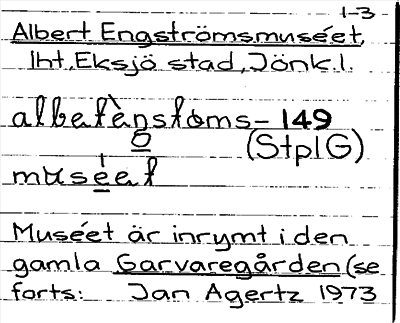 1-3
Albert Engströmsmuséet,
lht, Eksjö stad, Jönk.l.
149
(StplG)
Muséet är inrymt i den
gamla Garvaregården (se
forts: Jan Agertz 1973